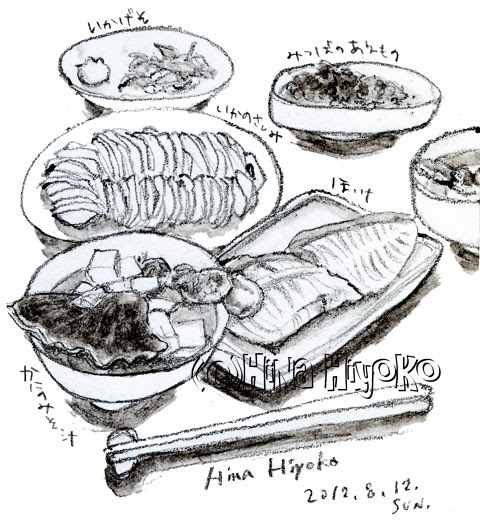 いかげそ
みつばのあえもの
いかのさしみ
ほっけ
かにのみそ汁
(C)HiNa HiyoKo
Hina Hiyoko
2012.8.12.
SUN.